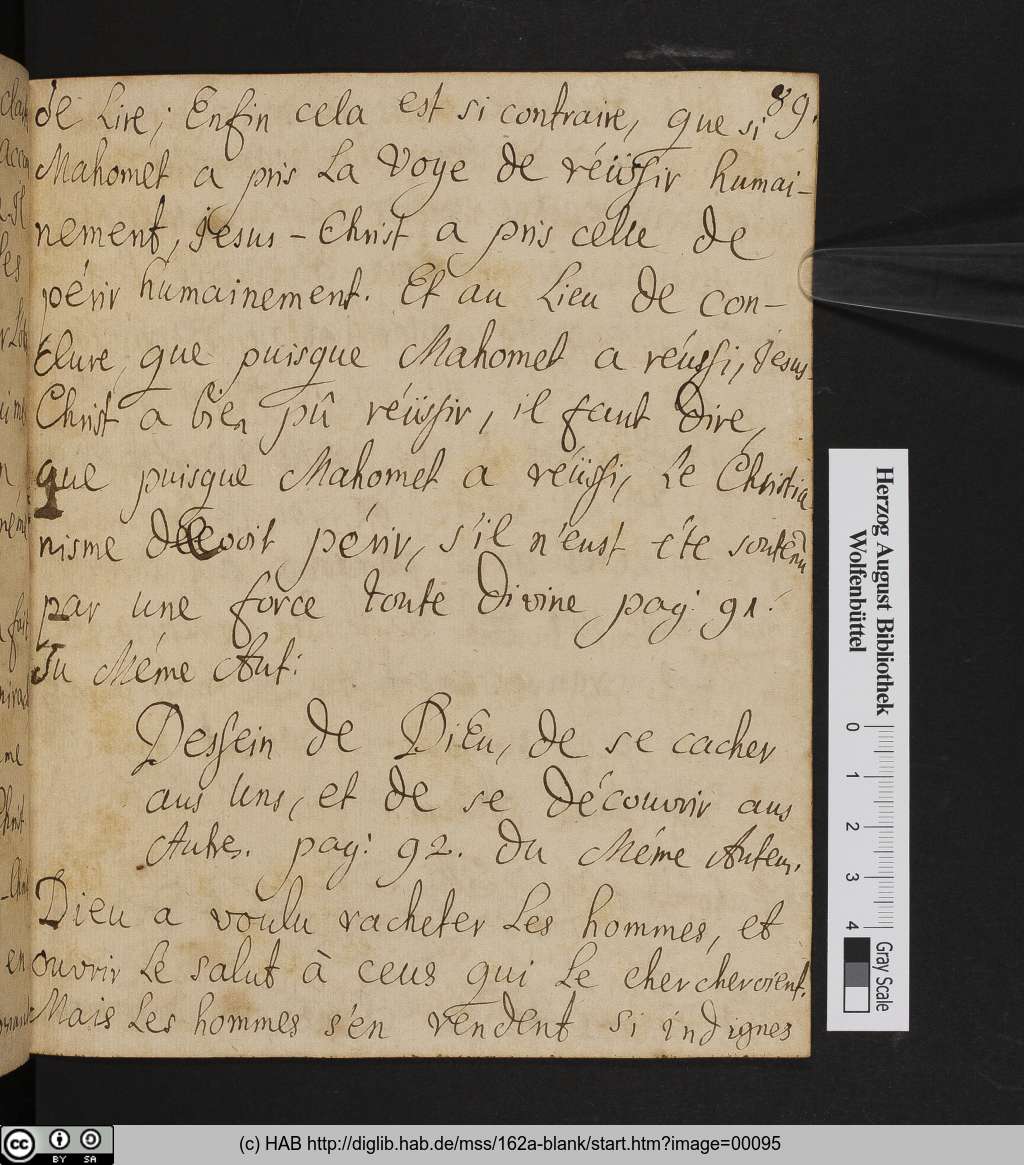 89.
de Lire; Enfin cela est si contraire, que si
Mahomet a pris La voye de réüssir humai-
nement, Jesus-Christ a pris celle de
périr humainement. Et au Lieu de con-
clure, que puisque Mahomet a réussi, Jesus-
Christ a bien pû réüssir, il faut dire,
que puisque Mahomet a réüssi, Le Christia
nisme devoit périr, s'il n'eust été soutenu
par une force toute divine pag: 91.
Du Méme Aut:
Dessein de Dieu, de se cacher
aus Uns, et de se découvrir aus
Autres. pag: 92. du Méme Auteur.
Dieu a voulu racheter Les hommes, et
ouvrir Le salut à ceus qui Le chercheroient.
Mais Les hommes s'en rendent si indignes
Herzog August Bibliothek
Wolfenbüttel
0 1 2 3 4
Gray Scale
cc BY SA
(c) HAB http://diglib.hab.de/mss/162a-blank/start.htm?image=00095